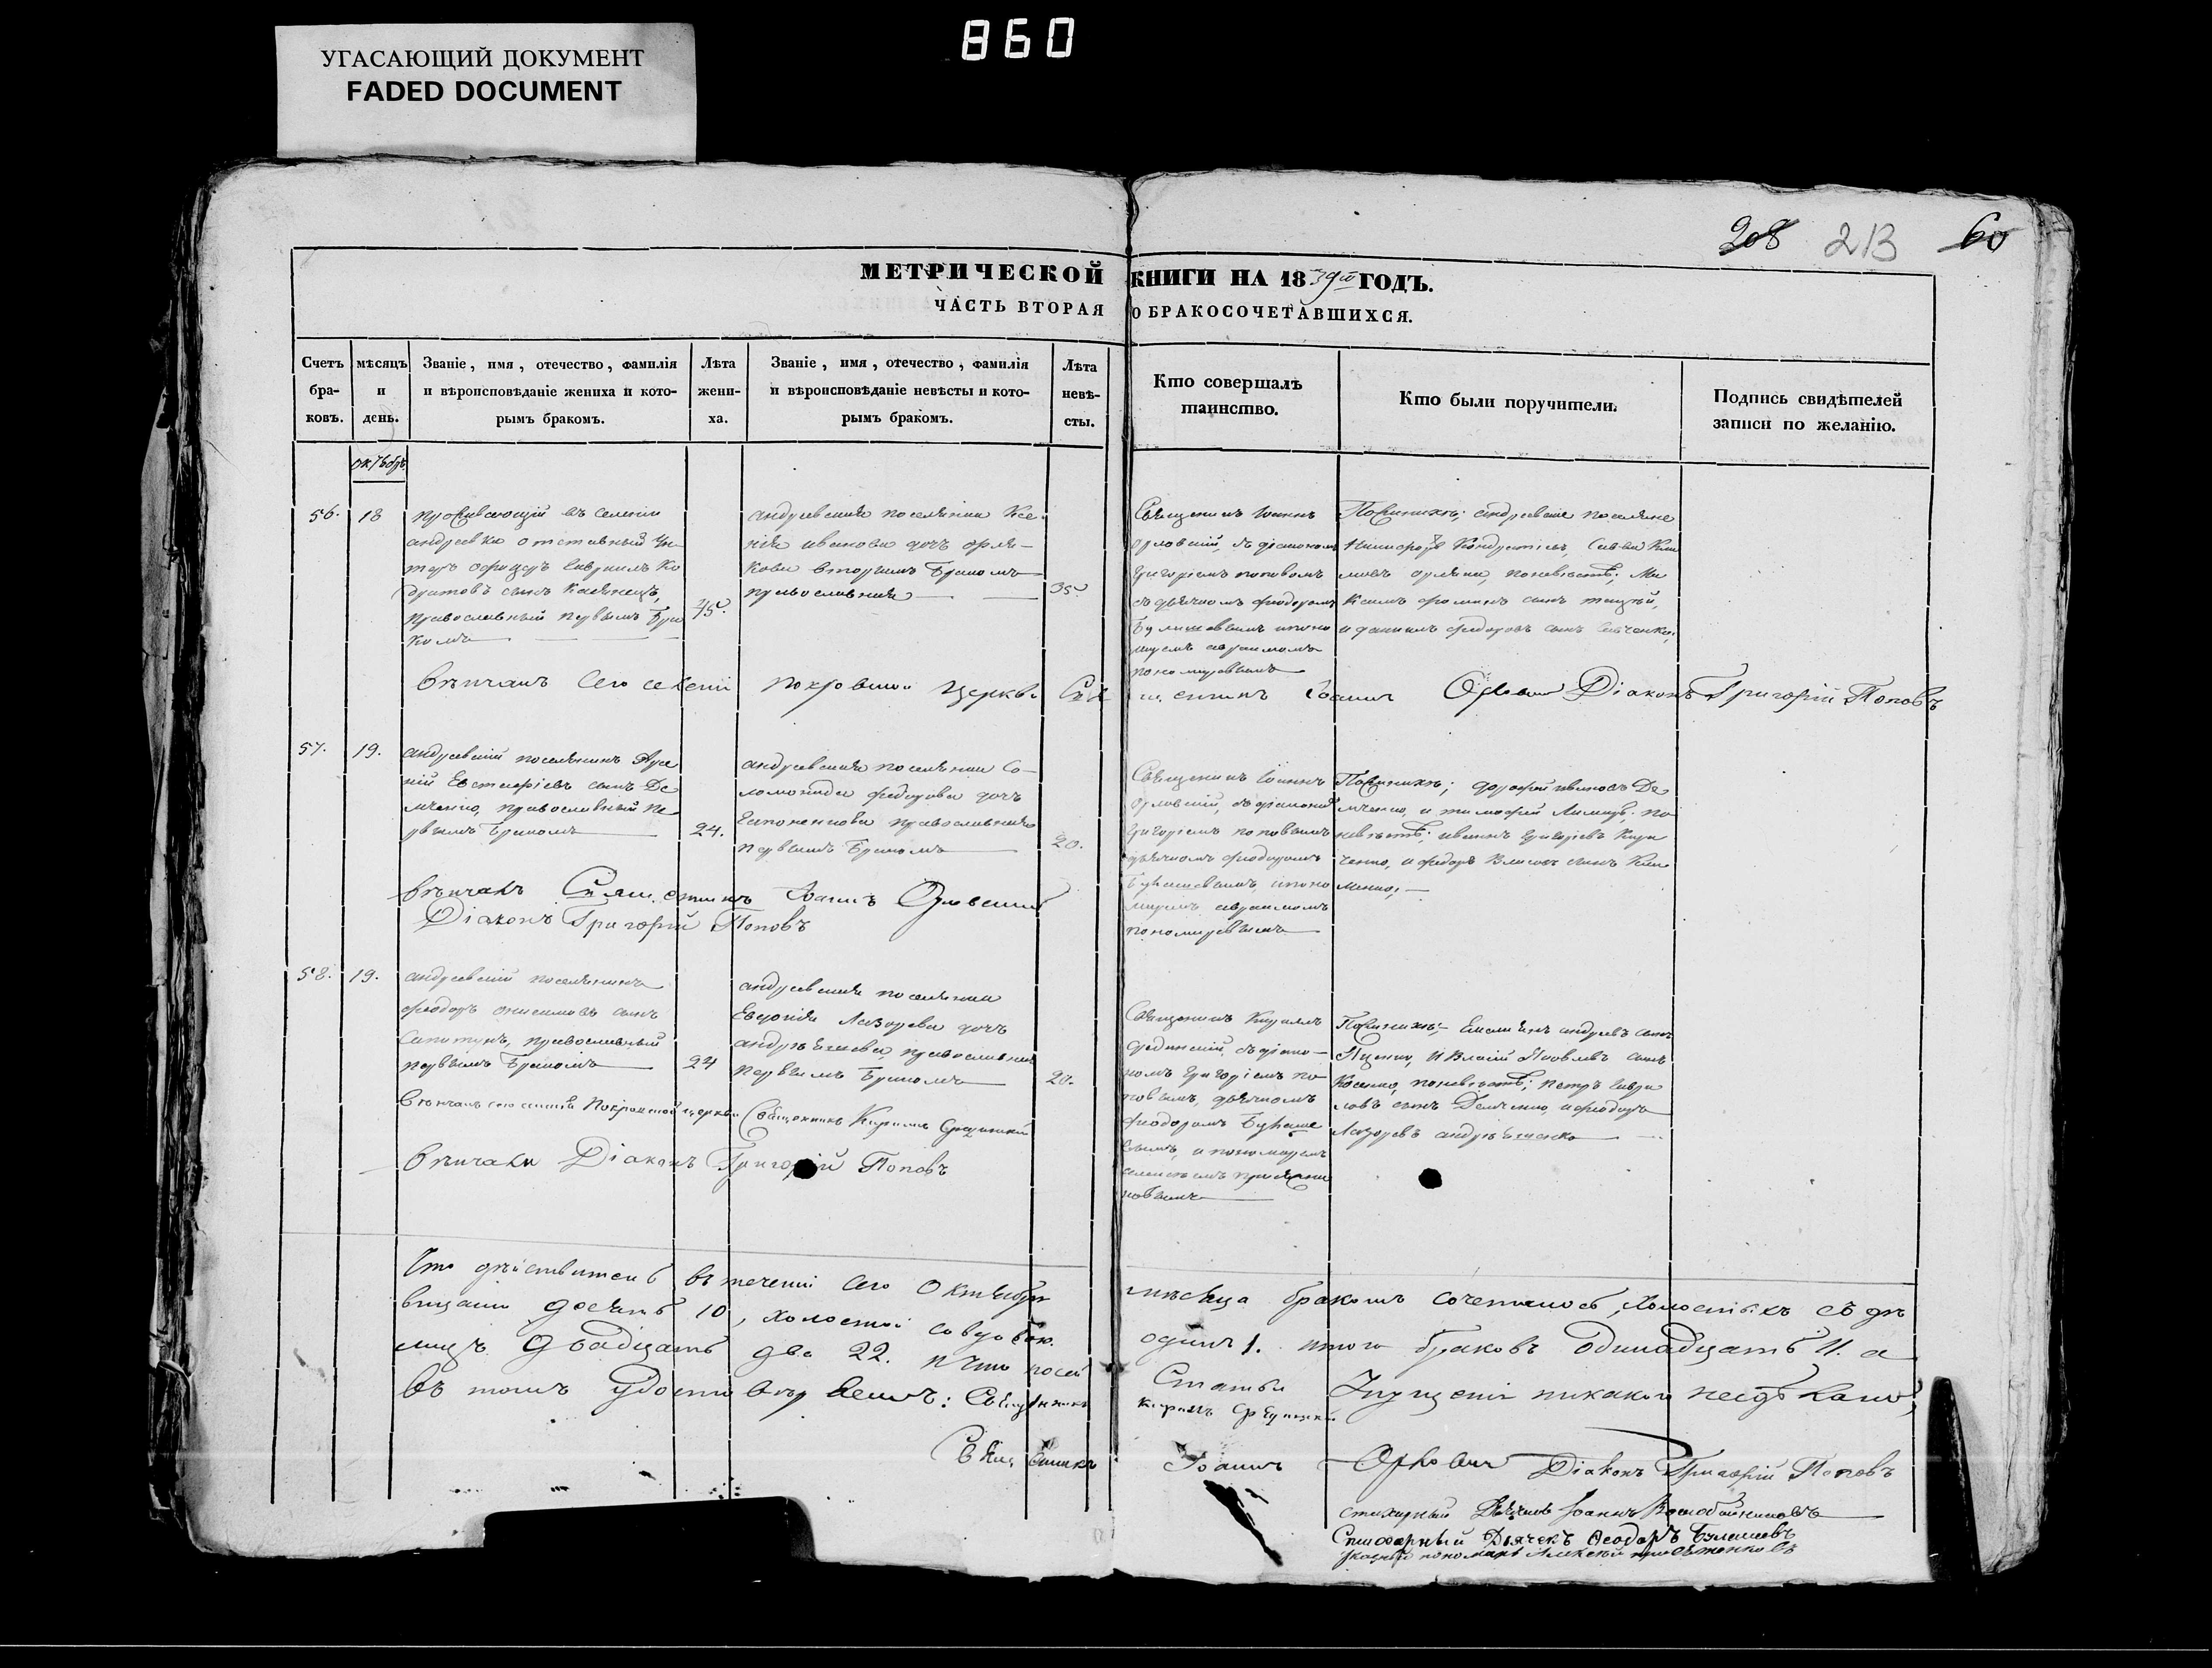 УГАСАЮЩИЙ ДОКУМЕНТ
FADED DOCUMENT
860
208 213 60
МЕТРИЧЕСКОЙ КНИГИ НА 1839й ГОДЪ.
ЧАСТЬ ВТОРАЯ О БРАКОСОЧЕТАВШИХСЯ.
Счетъ браковъ.
мѣсяцъ и день.
Званіе, имя, отечество, фамилія
и вѣроисповѣданіе жениха и кото-
рымъ бракомъ.
Лѣта жени-ха.
Званіе, имя, отечество, фамилія
и вѣроисповѣданіе невѣсты и кото-
рымъ бракомъ.
Лѣта невѣ-сты.
Кто совершалъ
таинство.
Кто были поручители.
Подпись свидѣтелей
записи по желанію.
56. 18
проживающій въ селеніи
андреевке отставный ун-
теръ офицеръ Гавриилъ Ко
православный первымъ бра
комъ
45.
андреевская поселянка Ксе-
нія иванова дочь орля-
кова вторымъ бракомъ
православная
35.
Священникъ Іоаннъ
орловскій, съ діакономъ
григоріемъ поповымъ
съ дьячкомъ феодоромъ
булашевымъ и поно
маремъ авраамомъ
пономаревымъ
По женихѣ; андреевские поселяне
и даниилъ федоровъ сынъ савченко,
вѣнчалъ сего селенія покровской церкви Священникъ Іоаннъ Орловскій Діаконъ Григорій Поповъ
57. 19.
андреевскій поселянинъ Арсе
ній Евстафіевъ сынъ Де
мченко, православный пе
рвымъ бракомъ
24.
андреевская поселянка Со-
ломонида федорова дочь
православная
первымъ бракомъ
20.
Священникъ Іоаннъ
орловскій, съ діакономъ
григоріемъ поповымъ
дьячкомъ феодоромъ
булашевымъ, и поно
маремъ авраамомъ
пономаревымъ
По женихѣ; дорофей ивановъ Де
мченко, и тимофей по
невѣстѣ; иванъ григорьевъ
и федоръ Власовъ сынъ Кли
менко,
вѣнчалъ Священникъ Іоаннъ Орловскій
Діаконъ Григорій Поповъ
58. 19.
андреевскій поселянинъ
феодоръ онисимовъ сынъ
православный
первымъ бракомъ
24
андреевская поселянка
Евдокія Лазорева дочь
православная
первымъ бракомъ
20.
Священникъ Кирилъ
съ діако-
номъ григоріемъ по
повымъ, дьячкомъ
феодоромъ булаше
вымъ, и пономаремъ
По женихѣ; Емельянъ андреевъ сынъ
и Власій Яковлевъ сынъ
по невѣстѣ; петръ гаври
ловъ сынъ Демченко и феодоръ
Лазоревъ
вѣнчалъ сего селенія Покровской церкви Священникъ Кирилъ
вѣнчали Діаконъ Григорій Поповъ
Что дѣйствительно въ теченіи сего Октября мѣсяца бракомъ сочеталось, холостыхъ съ дѣ
вицами десять 10, холостой со вдовою одинъ 1. итого браковъ одинадцать 11. а
лицъ двадцать два 22. и что по сей статьи упущенія никакого несдѣлано,
въ томъ удостовѣряемъ: Священникъ Кирилъ
Священникъ Іоаннъ Орловскій Діаконъ Григорій Поповъ
стихарный Дьячекъ Іоаннъ
Стихарный Дьячекъ Феодоръ Булашевъ
пономарь Алексѣй